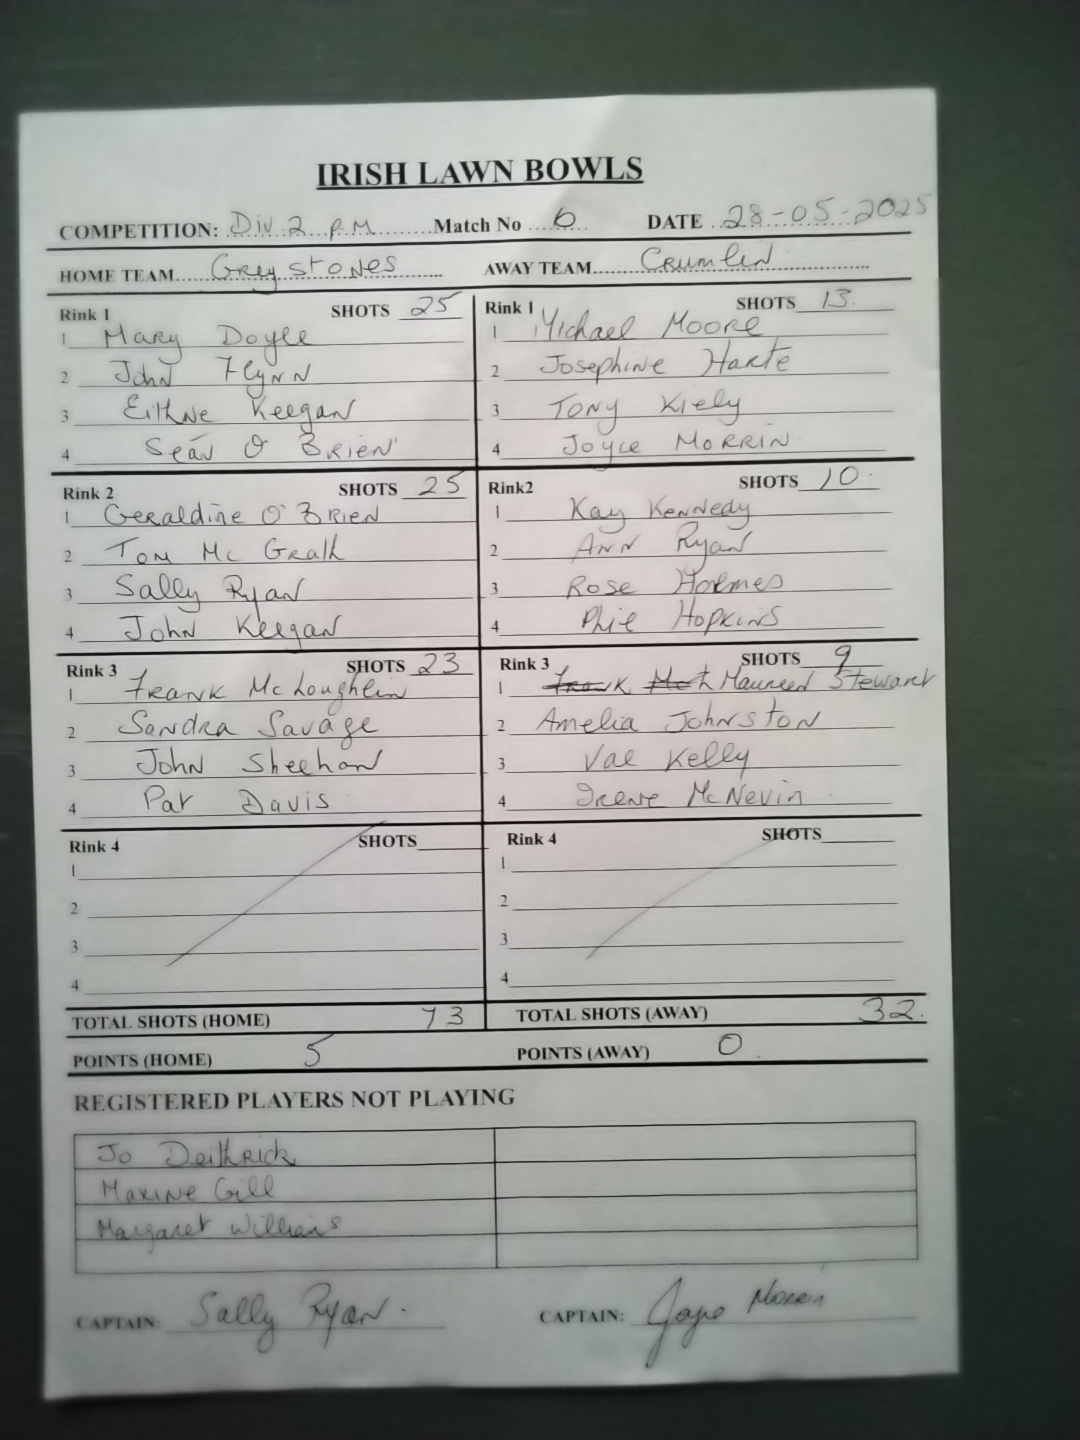 IRISH LAWN BOWLS
COMPETITION: Div. 2 P.M Match No 6 DATE 28-05-2025
HOME TEAM Greystones AWAY TEAM Crumlin
Rink 1 SHOTS 25
1 Mary Doyle
2 John Flynn
3 Eithne Keegan
4 Seán O'Brien
Rink 1 SHOTS 13.
1 Michael Moore
2 Josephine Harte
3 Tony Kiely
4 Joyce Morrin
Rink 2 SHOTS 25
1 Geraldine O'Brien
2 Tom Mc Grath
3 Sally Ryan
4 John Keegan
Rink2 SHOTS 10.
1 Kay Kennedy
2 Ann Ryan
3 Rose Holmes
4 Phil Hopkins
Rink 3 SHOTS 23
1 Frank McLoughlin
2 Sandra Savage
3 John Sheehan
4 Pat Davis
Rink 3 SHOTS 9
1 Frank Maureen Stewart
2 Amelia Johnston
3 Val Kelly
4 Irene McNevin
Rink 4 SHOTS
1
2
3
4
Rink 4 SHOTS
1
2
3
4
TOTAL SHOTS (HOME) 73 TOTAL SHOTS (AWAY) 32.
POINTS (HOME) 5 POINTS (AWAY) 0.
REGISTERED PLAYERS NOT PLAYING
Jo Deithrick
Maxine Gill
Margaret Williams
CAPTAIN: Sally Ryan. CAPTAIN: Joyce Morrin